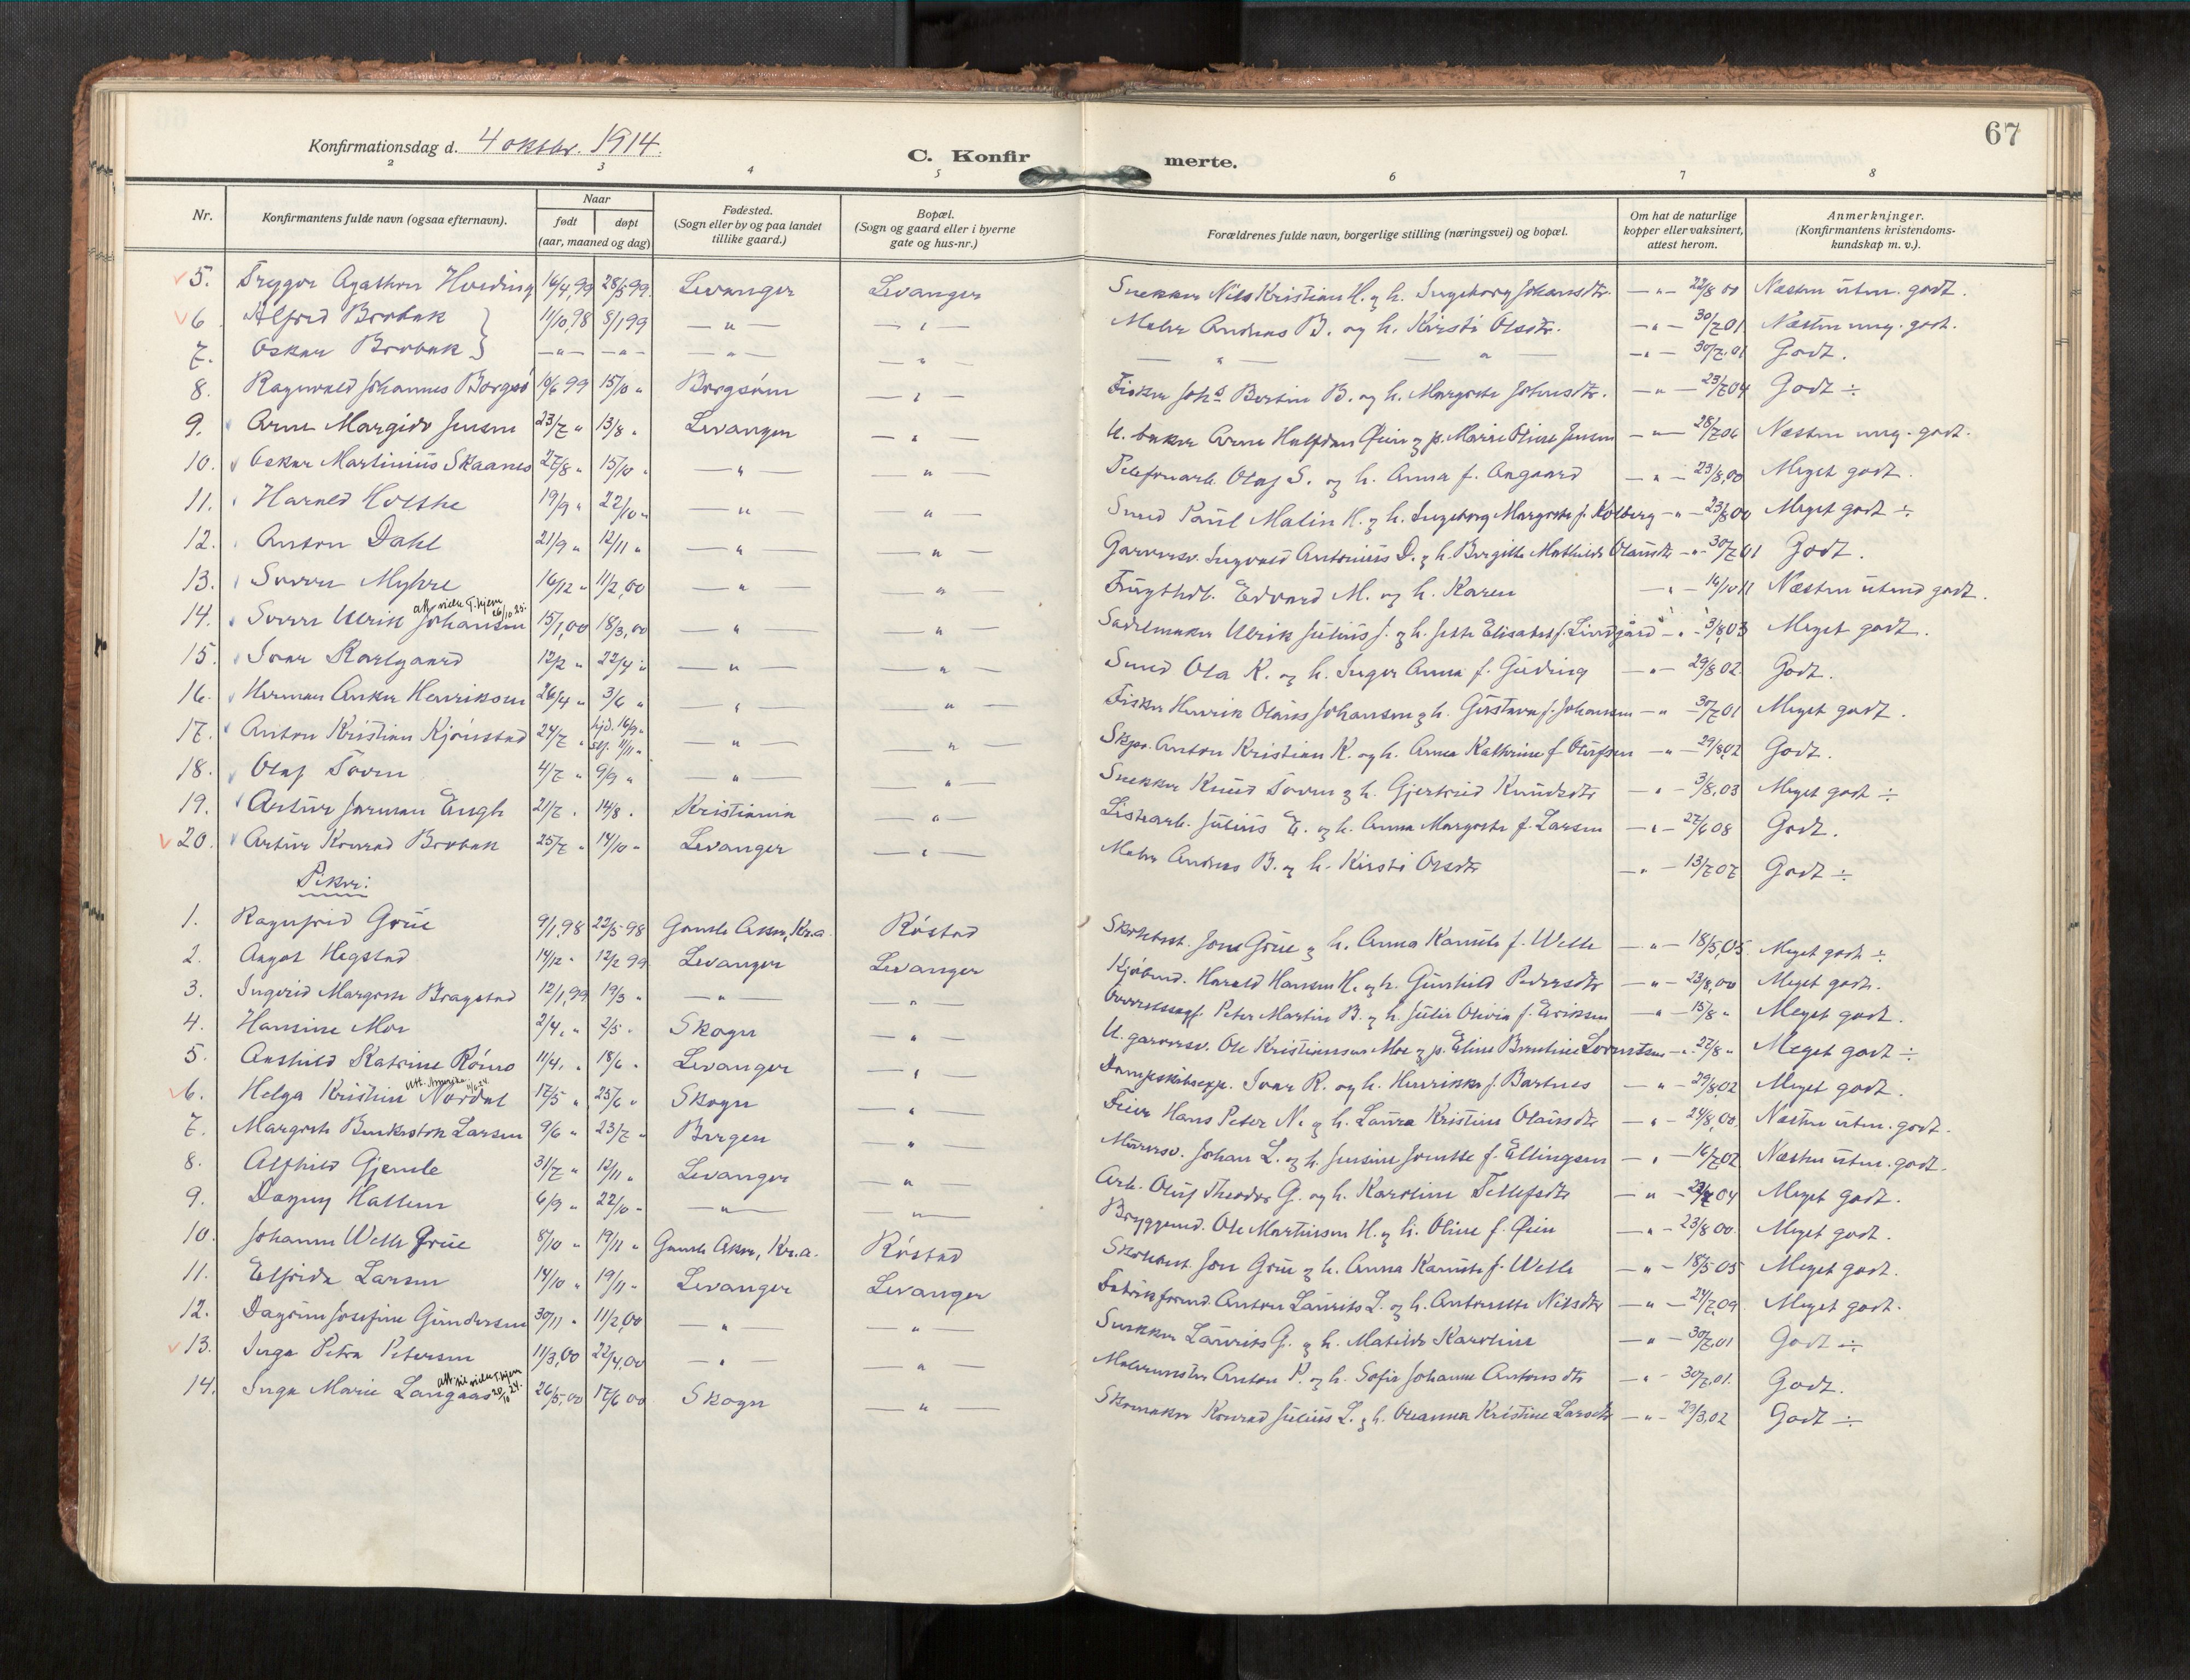 67
Konfirmationsdag d. 4 oktbr. 1914.
C. Konfir merte.
2 3 4 5 6 7 8
Nr.
Konfirmantens fulde navn (ogsaa efternavn).
Naar
født døpt
(aar, maaned og dag)
Fødested.
(Sogn eller by og paa landet
tillike gaard.)
Bopæl.
(Sogn og gaard eller i byerne
gate og hus-nr.)
Forældrenes fulde navn, borgerlige stilling (næringsvei) og bopæl.
Om hat de naturlige
kopper eller vaksinert,
attest herom.
Anmerkninger.
(Konfirmantens kristendoms-
kundskap m. v.).
5. Trygve Agathon Hveding 16/4,99 28/5 99. Levanger Levanger Snekker Nils Kristian H. og h. Ingeborg Johansdtr. — " — 22/8 00 Næsten utm. godt.
6 Alfred Brobak } 11/10,98 8/1 99 — " — — " — Maler Andreas B. og h. Kirsti Olsdtr. — " — 30/7 01 Næsten meg. godt.
7. Oskar Brobak } — " — — " — — " — — " — — " — — " — — " — 30/7.01 Godt.
8. Ragnvald Johannes Borgsø 10/6 99 15/10 " Borgsøen — " — Fisker Johs Bertin B. og h. Margrete Johnsdtr. — " — 23/7 04 Godt ÷
9. Arne Margido Jensen 23/7 " 13/8 " Levanger — " — U. baker Arne Halfdan Øien og p. Marie Oline Jensen — " — 28/7 06 Næsten meg. godt.
10. Oskar Martinius Skaanes 27/8 " 15/10 " — " — — " — Telefonarb. Olaf S. og h. Anna f. Aagaard — " — 23/8,00 Meget godt.
11. Harald Holthe 19/9 " 22/10 " — " — — " — Smed Paul Malin H. og h. Ingeborg Margrete f. Kolberg — " — 23/8 00 Meget godt ÷
12. Anton Dahl 21/9 " 12/11 " — " — — " — Garversv. Ingvald Antonius D. og h. Birgitte Mathilde Olausdtr — " — 30/7 01 Godt.
13. Sverre Myhre 16/12 " 11/2,00 — " — — " — Frugthdl. Edvard M. og h. Karen — " — 14/10 11 Næsten utmd godt.
14. Sverre Ulrik Johansen 15/1,00 18/3,00 — " — — " — Sadelmaker Ulrik Julius J. og h. Jette Elisabet f. Lindgård — " — 3/8,03 Meget godt.
15. Ivar Karlgaard 12/2 " 22/4 " — " — — " — Smed Ola K. og h. Inger Anna f. Guding — " — 29/8 02. Godt.
16. Herman Anker Henriksen 26/4 " 3/6 " — " — — " — Fisker Henrik Olaus Johansen og h. Gustava f. Johansen — " 30/7 01 Meget godt.
17. Anton Kristian Kjønstad 24/7 " hjd. 16/9 " — " — — " — Skpr. Anton Kristian K. og h. Anna Kathrine f. Olufsen — " — 29/8,02 Godt.
18. Olaf Toven 4/7 " 9/9 " — " — — " — Snekker Knud Toven og h. Gjertrud Knudsdtr — " — 3/8,03 Meget godt ÷
19. Artur Jarman Engh 21/7 " 14/8 " Kristiania — " — Listearb. Julius E. og h. Anna Margrete f. Larsen — " — 27/6 08 Godt.
20. Artur Konrad Brobak 25/7 " 14/10 " Levanger — " — Maler Andreas B. og h. Kirsti Olsdtr — " — 13/7 07 Godt ÷
Piker:
1. Ragnfrid Grue 9/1,98 22/5 98 Gamle Aker, Kr.a. Røstad Jon Grue og h. Anna Kamilla f. Welle — " — 18/5,05. Meget godt ÷
2. Aagot Hegstad 14/12 " 12/2 99 Levanger Levanger Kjøbmd. Harald Hansen H. og h. Gunhild Pedersdtr — " — 23/8,00 Meget godt.
3. Ingerid Margrete Bragstad 12/1,99 19/3 " — " — — " — Overretssagf. Peter Martin B. og h. Julie Olivia f. Eriksen — " — 15/8 " Meget godt.
4. Hansine Moe 2/4 " 2/5 " Skogn — " — U. garversv. Ole Kristiansen Moe og p. Eline Bentine Lorentsen — " 27/8 " Meget godt ÷
5. Anshild Katrine Rømo 11/4 " 18/6 " Levanger — " — Dampskibsexp. Ivar R. og h. Henrikke f. Bartnes — " — 29/8,02 Meget godt.
6. Helga Kristine Nordal 17/5 " 25/6 " Skogn — " — Feier Hans Peter N. og h. Laura Kristine Olausdtr — " — 24/8,00. Næsten utm. godt.
7. Margrete Larsen 9/6 " 23/7 " Bergen — " — Murersv. Johan L. og h. Jensine Jonette f. Ellingsen — " — 16/7,02 Næsten utm. godt.
8. Alfhild Gjemle 31/7 " 12/11 " Levanger — " — Arb. Oluf Theodor G. og h. Karoline Tellefsdtr — " — 23/7 04 Meget godt.
9. Dagny Hallem 6/9 " 22/10 " — " — — " — Bryggemd. Ole Martinsen H. og h. Oline f. Øien — " — 23/8 00. Meget godt.
10. Johanne Welle Grue 8/10 " 19/11 " Gamle Aker, Kr.a. Røstad Jon Grue og h. Anna Kamilla f. Welle — " — 18/5 05 Meget godt.
11. Elfrida Larsen 14/10 " 19/11 " Levanger Levanger Anton Laurits L. og h. Antonette Nilsdtr — " — 24/7,09. Meget godt.
12. Dagrun Josefine Gundersen 30/11 " 11/2,00 — " — — " — Snekker Laurits G. og h. Matilde Karoline — " — 30/7,01 Godt ÷
13. Inga Petra Petersen 11/3,00 22/4,00 — " — — " — Malermester Anton P. og h. Sofie Johanne Antonsdtr — " — 30/7,01. Godt.
14. Inga Marie Langaas 26/5,00 17/6 00 Skogn — " — Skomaker Konrad Julius L. og h. Oleanna Kristine Larsdtr — " — 29/3,02 Godt ÷